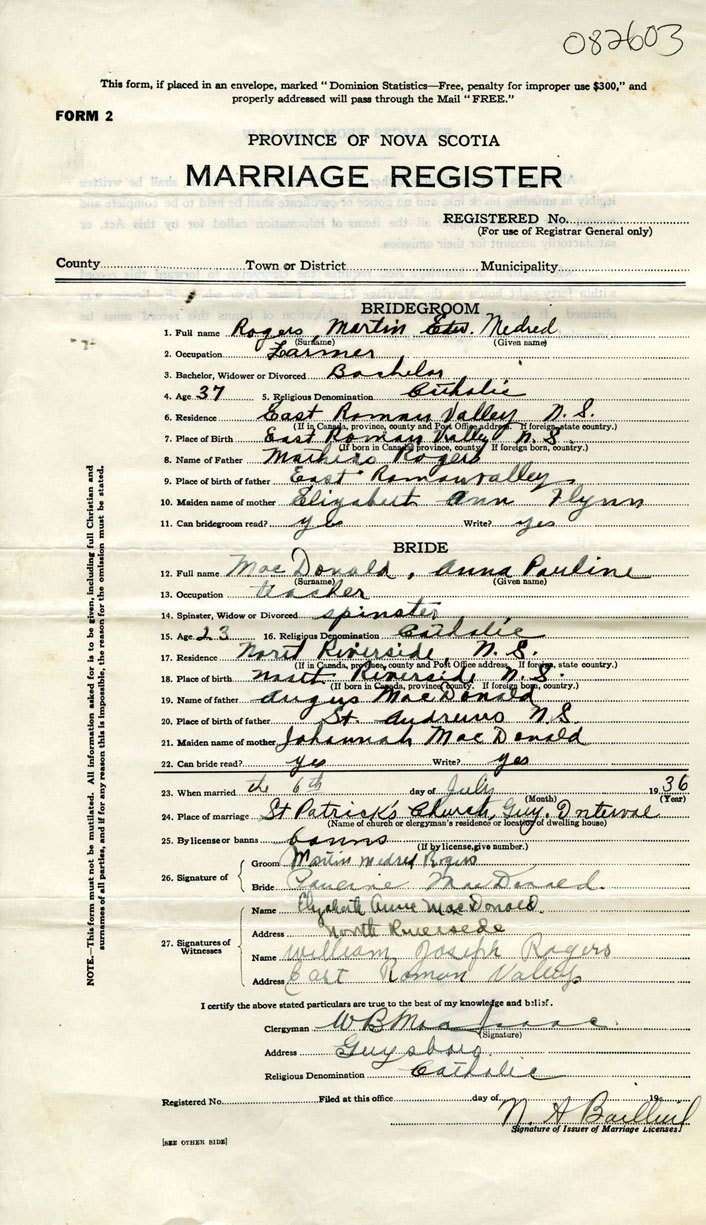 082603
This form, if placed in an envelope, marked "Dominion Statistics—Free, penalty for improper use $300," and
properly addressed will pass through the Mail "FREE."
FORM 2
PROVINCE OF NOVA SCOTIA
MARRIAGE REGISTER
REGISTERED No.
(For use of Registrar General only)
County Town or District Municipality
BRIDEGROOM
1. Full name Rogers, Martin Edw. Medred
(Surname) (Given name)
2. Occupation Farmer
3. Bachelor, Widower or Divorced Bachelor
4. Age 37 5. Religious Denomination Catholic
6. Residence East Roman Valley N. S.
(If in Canada, province, county and Post Office address. If foreign, state country.)
7. Place of Birth East Roman Valley N. S.
(If born in Canada, province, county. If foreign born, country.)
8. Name of Father Rogers
9. Place of birth of father East Romanvalley
10. Maiden name of mother Elizabeth Ann Flynn
11. Can bridegroom read? yes Write? yes
BRIDE
12. Full name MacDonald, Anna Pauline
(Surname) (Given name)
13. Occupation teacher
14. Spinster, Widow or Divorced spinster
15. Age 23 16. Religious Denomination Catholic
17. Residence North Riverside, N. S.
(If in Canada, province, county and Post Office address. If foreign, state country.)
18. Place of birth North Riverside N. S.
(If born in Canada, province, county. If foreign born, country.)
19. Name of father Angus MacDonald
20. Place of birth of father St. Andrews N.S.
21. Maiden name of mother Johannah MacDonald
22. Can bride read? yes Write? yes
23. When married the 6th day of July 1936
(Month) (Year)
24. Place of marriage St Patrick's Church, Guy. Interval
(Name of church or clergyman's residence or location of dwelling house)
25. By license or banns banns
(If by license, give number.)
26. Signature of
Groom Martin Medred Rogers
Bride Pauline MacDonald.
27. Signatures of Witnesses
Name Elizabeth Anne MacDonald.
Address North Riverside
Name William Joseph Rogers
Address East Roman Valley
I certify the above stated particulars are true to the best of my knowledge and belief.
Clergyman W B MacIsaac
(Signature)
Address Guysboro.
Religious Denomination Catholic
Registered No. Filed at this office day of 19
N. A
Signature of Issuer of Marriage Licenses
[SEE OTHER SIDE]
NOTE.—This form must not be mutilated. All information asked for is to be given, including full Christian and
surnames of all parties, and if for any reason this is impossible, the reason for the omission must be stated.